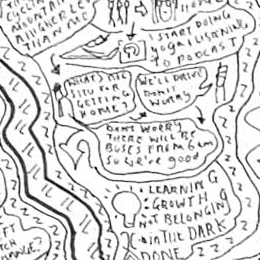 MOUNTAI
A HIGHER LE
THAN ME
I START DOING
YOGA LISTENING
TO PODCAST
WHAT'S THE
SITU FOR
GETTING
HOME?
WE'LL DRIVE
DON'T
WORRY
DON'T WORRY
THERE WILL BE
BUSES FROM 6am
SO WE'RE GOOD
• LEARNING
• GROWTH
NOT BELONGING
• IN THE DARK
DONE